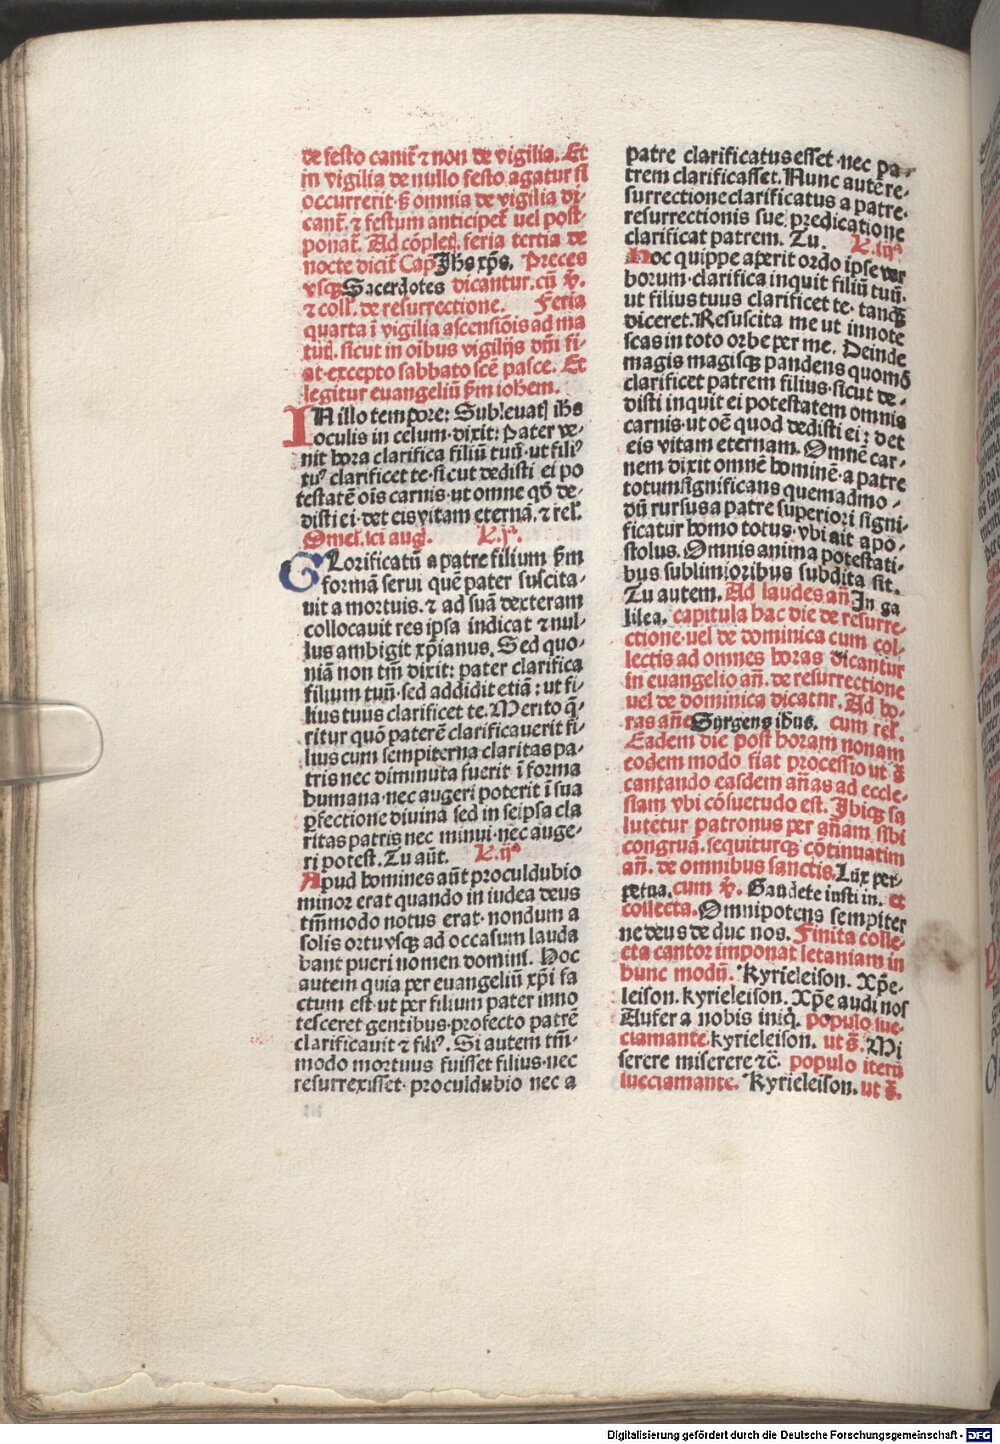 de festo canit̄ ⁊ non de vigilia. Et
in vigilia de nullo festo agatur si
occurrerit· sꝫ omnia de vigilia di
cant̄. ⁊ festum anticipet̄ uel post-
ponat̄. Ad cōplet. feria tertia de
nocte dicit̄ Cap̄ Jhs xp̄s. Preces
vsqꝫ Sacerdotes dicantur. cū ꝟ.
⁊ coll. de resurrectione. Feria
quarta ī vigilia ascensiōis ad ma
tut̄. sicut in oībus vigilijs dn̄i fi-
at· excepto sabbato scē pasce. Et
legitur euangeliū ẜm iohem.
IN illo tempore: Subleuatꝭ ihs
oculis in celum· dixit: Pater ve-
nit hora clarifica filiū tuū· ut filiꝰ
tuꝰ clarificet te· sicut dedisti ei po
testatē oīs carnis· ut omne qd̄ de-
disti ei· det eis vitam eternā. ⁊ rel.
Omel. sci aug. L. jᵃ.
GLorificatū a patre filium ẜm
formā serui quē pater suscita-
uit a mortuis. ⁊ ad suā dexteram
collocauit res ipsa indicat ⁊ nul-
lus ambigit xp̄ianus. Sed quo-
niā non tm̄ dixit: pater clarifica
filium tuū· sed addidit etiā: ut fi-
lius tuus clarificet te. Merito q̄-
ritur quō paterē clarificauerit fi-
lius cum sempiterna claritas pa-
tris nec diminuta fuerit ī forma
humana· nec augeri poterit ī sua
ꝑfectione diuina sed in seipsa cla
ritas patris nec minui· nec auge-
ri potest. Tu aūt. L. ijᵃ
Apud homines aūt proculdubio
minor erat quando in iudea deus
tm̄modo notus erat· nondum a
solis ortu vsqꝫ ad occasum lauda
bant pueri nomen domini. Hoc
autem quia per euangeliū xp̄i fa
ctum est· ut per filium pater inno
tesceret gentibus· profecto patrē
clarificauit ⁊ filiꝰ. Si autem tm̄-
modo mortuus fuisset filius· nec
resurrexisset· proculdubio nec a
patre clarificatus esset· nec pa-
trem clarificasset. Nunc autē re-
surrectione clarificatus a patre·
resurrectionis sue predicatione
clarificat patrem. Tu. L. iijᵃ
Hoc quippe aperit ordo ipse ver
borum· clarifica inquit filiū tuū·
ut filius tuus clarificet te· tanqꝫ
diceret. Resuscita me ut innote
scas in toto orbe per me. Deinde
magis magisqꝫ pandens quomō
clarificet patrem filius· sicut de-
disti inquit ei potestatem omnis
carnis· ut oē quod dedisti ei: det
eis vitam eternam. Omnē car-
nem dixit omnē hominē· a patre
totum significans quemadmo-
dū rursus a patre superiori signi-
ficatur homo totus· vbi ait apo-
stolus. Omnis anima potestati-
bus sublimioribus subdita sit.
Tu autem. Ad laudes an̄. In ga
lilea. capitula hac die de resurre-
ctione· uel de dominica cum col-
lectis ad omnes horas dicantur
in euangelio an̄. de resurrectione
uel de dominica dicatur. Ad ho-
ras an̄e Surgens ihus. cum rel.
Eadem die post horam nonam
eodem modo fiat processio ut s̄.
cantando easdem an̄as ad eccle-
siam vbi cōsuetudo est. Ibiqꝫ sa
lutetur patronus per an̄am sibi
congruā. sequiturqꝫ cōtinuatim
an̄. de omnibus sanctis. Lux per-
petua. cum ꝟ. Gaudete iusti in. et
collecta. Omnipotens sempiter
ne deus de duc nos. Finita colle-
cta cantor imponat letaniam in
hunc modū. Kyrieleison. Xp̄e-
leison. kyrieleison. Xp̄e audi nos
Aufer a nobis iniq̄. populo suc-
clamante. kyrieleison. ut s̄. Mi
serere miserere ⁊c̄. populo iterū
succlamante. Kyrieleison. ut s̄.
Digitalisierung gefördert durch die Deutsche Forschungsgemeinschaft - DFG